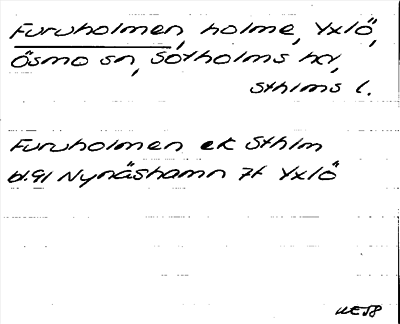 Furuholmen, holme, Yxlö,
Ösmo sn, Sotholms hr,
Sthlms l.
Furuholmen ek Sthlm
bl.91 Nynäshamn 7f Yxlö